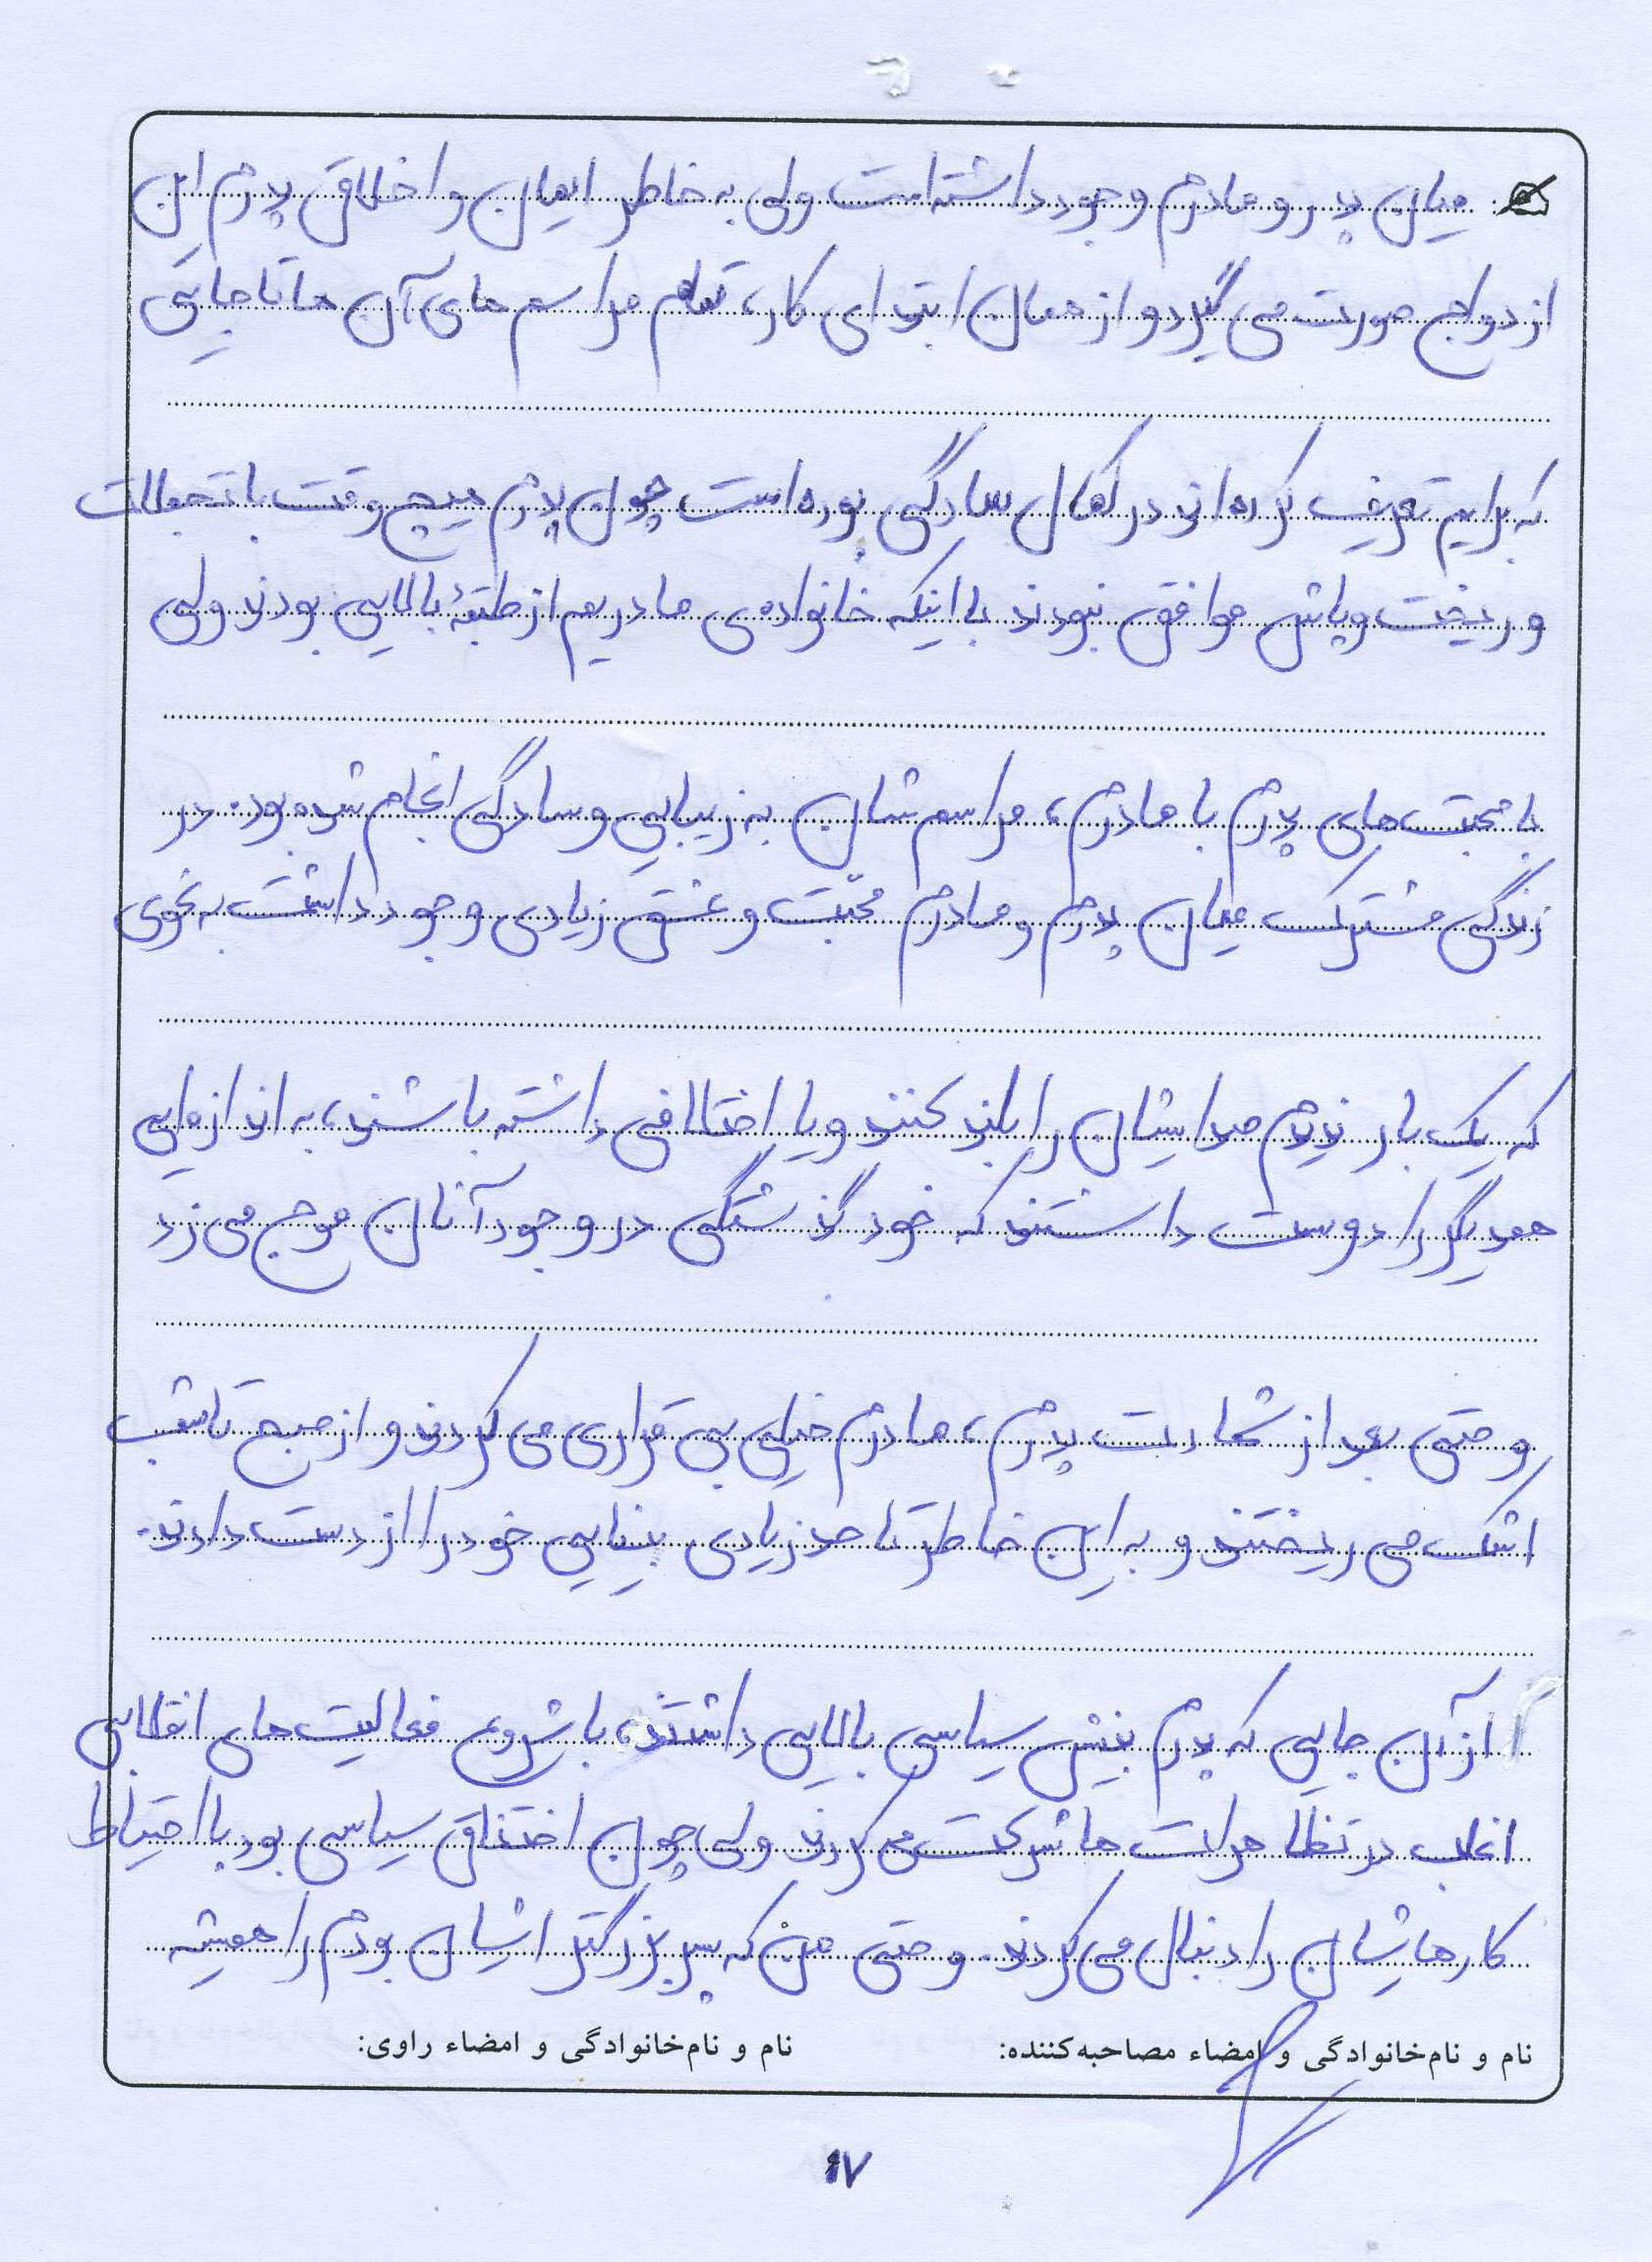 میان پدر و مادرم وجود داشته است ولی به خاطر ایمان و اخلاق پدرم این
ازدواج صورت می گیرد و از همان ابتدای کار، تمام مراسم های آن ها تا جایی
که برایم تعریف کرده اند در کمال سادگی بوده است چون پدرم هیچ وقت با تجملات
و ریخت و پاش موافق نبودند با اینکه خانواده ی مادریم از طبقهٔ بالایی بودند ولی
با محبت های پدرم با مادرم، مراسم شان به زیبایی و سادگی انجام شده بود. در
زندگی مشترک میان پدرم و مادرم محبّت و عشق زیادی وجود داشت به نحوی
که یک بار ندیدم صدایشان را بلند کنند و یا اختلافی داشته باشند، به اندازه ایی
همدیگر را دوست داشتند که خود گذشتگی در وجود آنان موج می زد
و حتی بعد از شهادت پدرم، مادرم خیلی بی قراری می کردند و از صبح تا شب
اشک می ریختند و به این خاطر تا حد زیادی بینایی خود را از دست دادند.
از آن جایی که پدرم بینش سیاسی بالایی داشتند، با شروع فعالیت های انقلابی
اغلب در تظاهرات ها شرکت می کردند ولی چون اختناق سیاسی بود با احتیاط
کارهایشان را دنبال می کردند. و حتی من که پسر بزرگتر ایشان بودم را همیشه
نام و نام‌خانوادگی و امضاء مصاحبه‌کننده: نام و نام‌خانوادگی و امضاء راوی:
۱۷